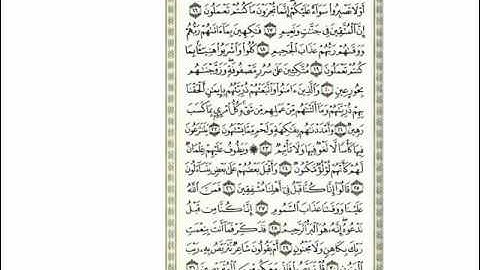 أَوْ لَا تَصْبِرُوا۟ سَوَآءٌ عَلَيْكُمْ إِنَّمَا تُجْزَوْنَ مَا كُنتُمْ تَعْمَلُونَ ١٦
إِنَّ ٱلْمُتَّقِينَ فِى جَنَّٰتٍ وَنَعِيمٍ ١٧ فَٰكِهِينَ بِمَآ ءَاتَىٰهُمْ رَبُّهُمْ
وَوَقَىٰهُمْ رَبُّهُمْ عَذَابَ ٱلْجَحِيمِ ١٨ كُلُوا۟ وَٱشْرَبُوا۟ هَنِيٓـًٔۢا بِمَا
كُنتُمْ تَعْمَلُونَ ١٩ مُتَّكِـِٔينَ عَلَىٰ سُرُرٍ مَّصْفُوفَةٍ وَزَوَّجْنَٰهُم
بِحُورٍ عِينٍ ٢٠ وَٱلَّذِينَ ءَامَنُوا۟ وَٱتَّبَعَتْهُمْ ذُرِّيَّتُهُم بِإِيمَٰنٍ أَلْحَقْنَا
بِهِمْ ذُرِّيَّتَهُمْ وَمَآ أَلَتْنَٰهُم مِّنْ عَمَلِهِم مِّن شَىْءٍ كُلُّ ٱمْرِئٍۭ بِمَا كَسَبَ
رَهِينٌ ٢١ وَأَمْدَدْنَٰهُم بِفَٰكِهَةٍ وَلَحْمٍ مِّمَّا يَشْتَهُونَ ٢٢ يَتَنَٰزَعُونَ
فِيهَا كَأْسًا لَّا لَغْوٌ فِيهَا وَلَا تَأْثِيمٌ ٢٣ ۞ وَيَطُوفُ عَلَيْهِمْ غِلْمَانٌ
لَّهُمْ كَأَنَّهُمْ لُؤْلُؤٌ مَّكْنُونٌ ٢٤ وَأَقْبَلَ بَعْضُهُمْ عَلَىٰ بَعْضٍ يَتَسَآءَلُونَ
٢٥ قَالُوٓا۟ إِنَّا كُنَّا قَبْلُ فِىٓ أَهْلِنَا مُشْفِقِينَ ٢٦ فَمَنَّ ٱللَّهُ
عَلَيْنَا وَوَقَىٰنَا عَذَابَ ٱلسَّمُومِ ٢٧ إِنَّا كُنَّا مِن قَبْلُ
نَدْعُوهُ إِنَّهُۥ هُوَ ٱلْبَرُّ ٱلرَّحِيمُ ٢٨ فَذَكِّرْ فَمَآ أَنتَ بِنِعْمَتِ
رَبِّكَ بِكَاهِنٍ وَلَا مَجْنُونٍ ٢٩ أَمْ يَقُولُونَ شَاعِرٌ نَّتَرَبَّصُ بِهِۦ رَيْبَ
ٱلْمَنُونِ ٣٠ قُلْ تَرَبَّصُوا۟ فَإِنِّى مَعَكُم مِّنَ ٱلْمُتَرَبِّصِينَ ٣١